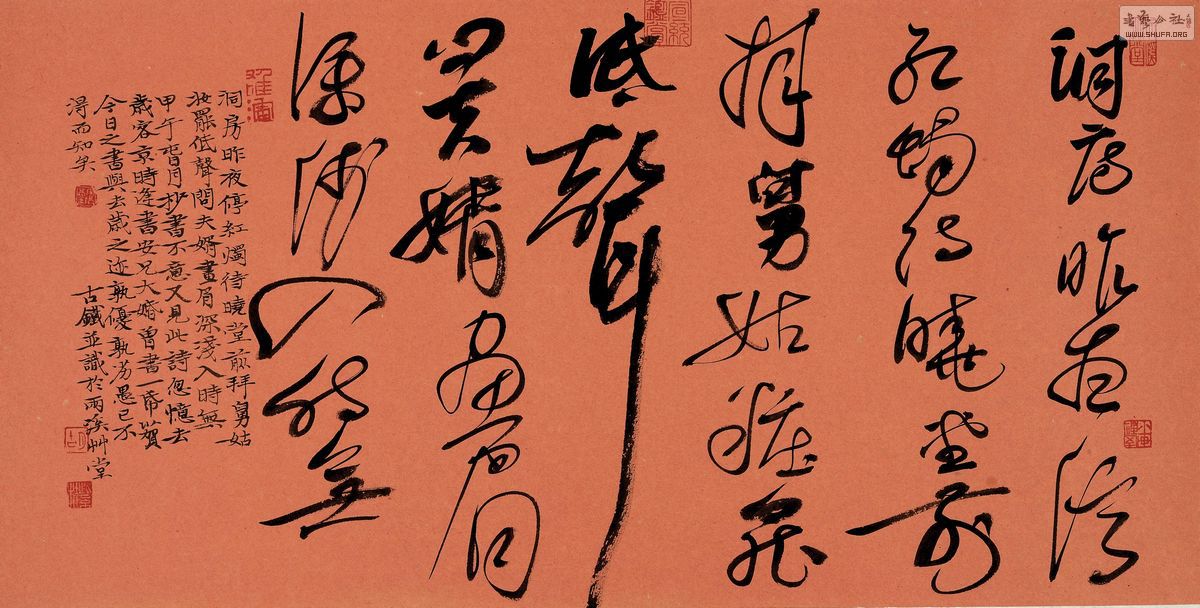 洞房昨夜停
紅燭待曉堂前
拜舅姑粧罷
低聲
問夫婿畫眉
深淺入時無
洞房昨夜停紅燭待曉堂前拜舅姑
妝罷低聲問夫婿畫眉深淺入時無
甲午月抄書不意又見此詩忽憶去
歲客京時逢書安兄大婚曾書一帋賀
今日之書與去歲之迹孰優孰劣愚已不
得而知矣
古鐵並識於雨艸堂
WWW.SHUFA.ORG